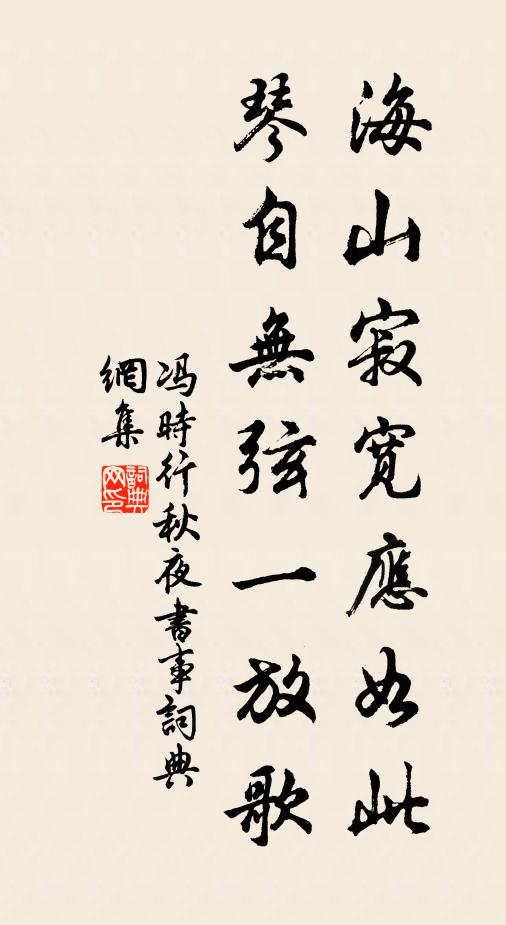 海山寂寬應如此
琴自無弦一放歌
馮時行秋夜書事詞典
網集
詞典網印